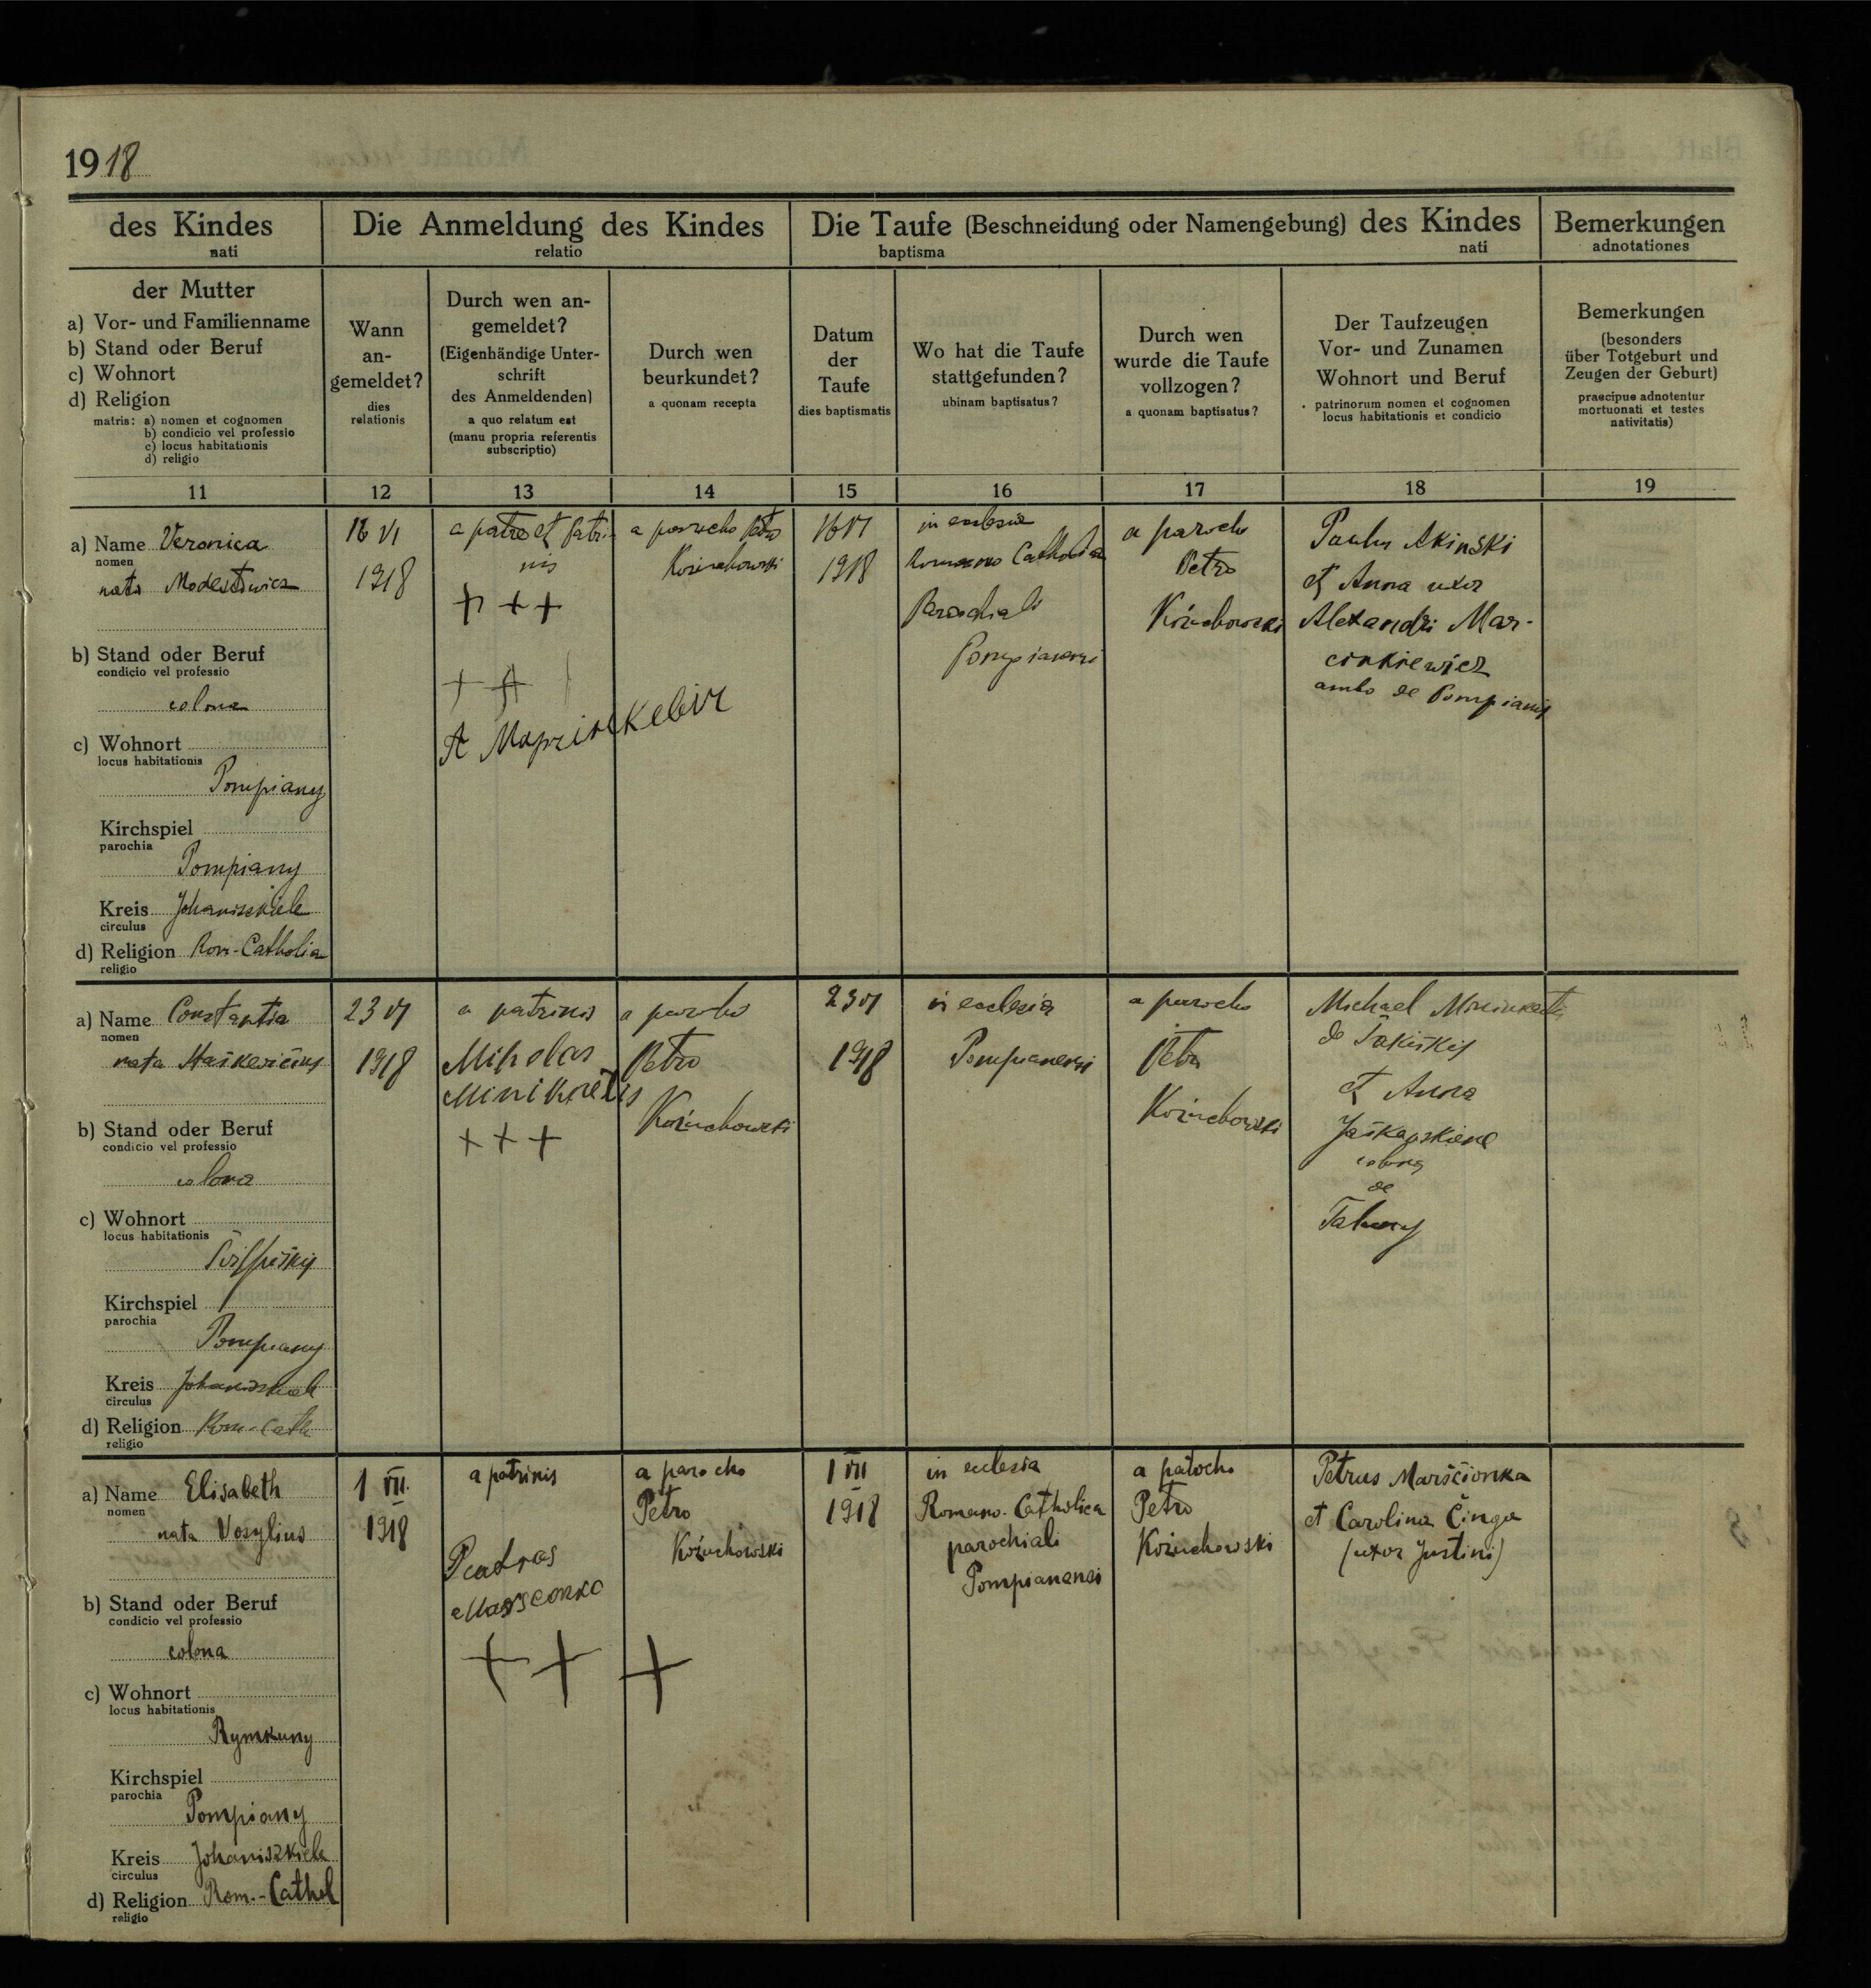 1918
des Kindes
nati
Die Anmeldung des Kindes
relatio
Die Taufe (Beschneidung oder Namengebung) des Kindes
baptisma nati
Bemerkungen
adnotationes
der Mutter
a) Vor- und Familienname
b) Stand oder Beruf
c) Wohnort
d) Religion
matris: a) nomen et cognomen
b) condicio vel professio
c) locus habitationis
d) religio
Wann
an-
gemeldet?
dies
relationis
Durch wen an-
gemeldet?
(Eigenhändige Unter-
schrift
des Anmeldenden)
a quo relatum est
(manu propria referentis
subscriptio)
Durch wen
beurkundet?
a quonam recepta
Datum
der
Taufe
dies baptismatis
Wo hat die Taufe
stattgefunden?
ubinam baptisatus?
Durch wen
wurde die Taufe
vollzogen?
a quonam baptisatus?
Der Taufzeugen
Vor- und Zunamen
Wohnort und Beruf
patrinorum nomen et cognomen
locus habitationis et condicio
Bemerkungen
(besonders
über Totgeburt und
Zeugen der Geburt)
praecipue adnotentur
mortuonati et testes
nativitatis)
11 12 13 14 15 16 17 18 19
a) Name Veronica
nomen
nata Modestowicz
b) Stand oder Beruf
condicio vel professio
colona
c) Wohnort
locus habitationis
Pompiany
Kirchspiel
parochia
Pompiany
Kreis Johaniszkiele
circulus
d) Religion Rom-Catholica
religio
16 VI
1918
a patre et patri-
nis
+ + +
+ +
A
a parocho Petro
Kozuchowski
16 VI
1918
in ecclesia
Romano Catholica
Parochiali
Pompianensi
a parocho
Petro
Kożuchowski
Paulus Akinski
et Anna uxor
Alexandri Mar-
cinkiewicz
ambo de Pompiany
a) Name Constantia
nomen
nata
b) Stand oder Beruf
condicio vel professio
colona
c) Wohnort
locus habitationis
Kirchspiel
parochia
Pompiany
Kreis Johaniszkiele
circulus
d) Religion Rom-Cath
religio
23 VI
1918
a patrinis
Mikolas
+ + +
a parocho
Petro
Kożuchowski
23 VI
1918
in ecclesia
Pompianensi
a parocho
Petro
Kożuchowski
Michael
de
et Anna
colona
de
a) Name Elisabeth
nomen
nata Vosylius
b) Stand oder Beruf
condicio vel professio
colona
c) Wohnort
locus habitationis
Rymkuny
Kirchspiel
parochia
Pompiany
Kreis Johaniszkiele
circulus
d) Religion Rom.-Cathol
religio
1 VII.
1918
a patrinis
+ + +
a parocho
Petro
Kożuchowski
1 VII
1918
in eclesia
Romano-Catholica
parochiali
Pompianensi
a parocho
Petro
Kożuchowski
Petrus Marščionka
et Carolina Činga
(uxor Justini)